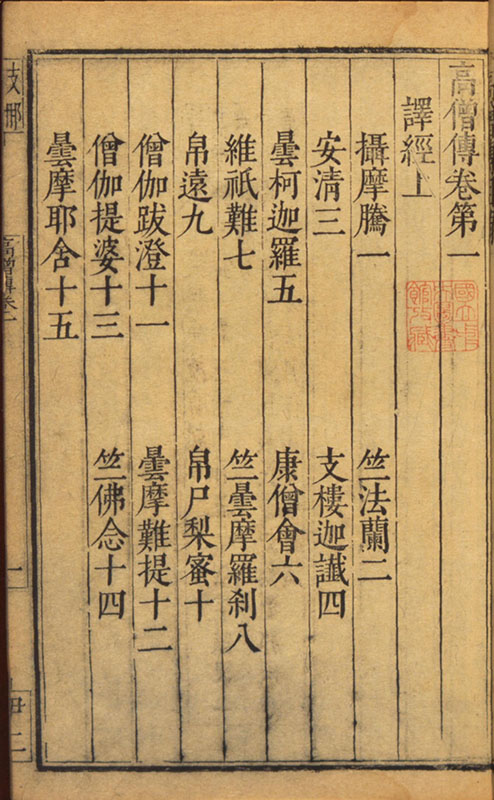 高僧傳卷第一
譯經上
攝摩騰一 竺法蘭二
安清三 支樓迦讖四
曇柯迦羅五 康僧會六
維祇難七 竺曇摩羅刹八
帛遠九 帛尸梨蜜十
僧伽跋澄十一 曇摩難提十二
僧伽提婆十三 竺佛念十四
曇摩耶舍十五
支那
高僧傳卷一
一